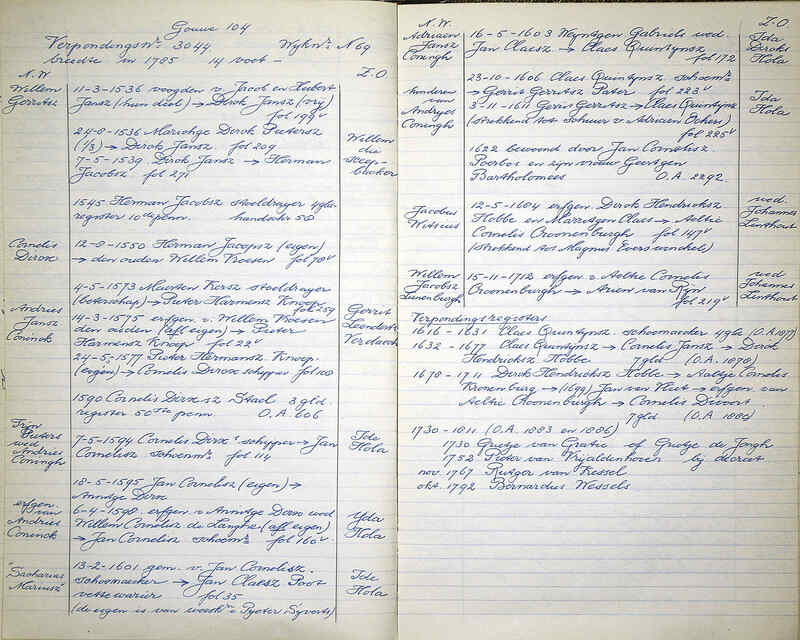 Gouwe 104
Verpondingsnr. 3044 Wijknr. N 69
breedte in 1785 14 voet -
N.W Z.O.
Willem
Gerritsz
11-3-1536 voogden v. Jacob en Heibert
Jansz (hun deel) → Derck Jansz (vrij)
fol 199v
24-8-1536 Mariehge Derck Pietersz
(1/3) → Derck Jansz fol 209
7-5-1539 Derck Jansz → Herman
Jacobsz fol 271
Willem
die
Seep-
backer
1545 Herman Jacobsz stoeldrayer 4 gld.
register 10de penn. handschr 50
Cornelis
Dircx
12-8-1550 Herman Jacopsz (eigen)
→ den ouden Willem Kroesen fol 70v
Andries
Jansz
Coninck
4-5-1573 Maerten Kersz stoeldrayer
(beterschap) → Pieter Harmensz Knoep
fol 259
14-3-1575 erfgen. v. Willem Kroesen
den ouden (afl eigen) → Pieter
Harmensz Knoep fol 22v
24-5-1577 Pieter Hermansz Knoep
(eigen) → Cornelis Dircxz schipper fol 120
Gerrit
Leendertsz
Verdasch
1590 Cornelis Dircxsz Stael 3 gld.
register 50ste penn. O.A. 606
Tryn
Pieters
wed
Andries
Coningh
7-5-1594 Cornelis Dircxs schipper → Jan
Cornelisz schoenmr fol 114
Ida
Hola
18-5-1595 Jan Cornelisz (eigen) →
Annitge Dircx
erfgen.
van
Andries
Coninck
6-4-1598 erfgen. v Annitge Dircx wed
Willem Cornelisz de Langhe (afl eigen)
→ Jan Cornelisz schoenmr fol 160v
Yda
Hola
"Sacharias
Mariusz"
13-2-1601 gem. v. Jan Cornelisz.
schoemaecker → Jan Claesz Poot
vettewarier fol 35
(de eigen is van weesk. v Pyeter Syverts)
Ida
Hola
N.W. Z.O.
Adriaen
Jansz
Coningh
16-5-1603 Weyntgen Gabriels wed.
Jan Claesz → Claes Quintynsz
fol 172
Ida
Dircks
Hola
kinderen
van
Andryes
Coningh
23-10-1606 Claes Quintynsz schoenmr
→ Gerrit Gerritsz Pater fol 223v
3-11-1611 Gerrit Gerritsz → Claes Quintynsz
(strekkend tot schuer v Adriaen Ockers)
fol 225v
Ida
Hola
1622 bewoond door Jan Cornelisz
Poerbos en zijn vrouw Geertgen
Bartholomees O.A. 2292.
Jacobus
Witsius
12-5-1684 erfgen. Dirck Hendricksz
Hobbe en Marritgen Claes → Aeltie
Cornelis Croonenburgh fol 147v
(strekkend tot Magnus Evers winckel)
wed.
Johannes
Lunthorst
Willem
Jacobsz
Lunenburgh
15-11-1712 erfgen v. Aeltie Cornelis
Croonenburgh → Arien van Rijn
fol 219v
wed
Johannes
Lunthorst
Verpondingsregisters
1616-1631 Claes Quintynsz. schoemaecker 4 gld (O.A. 1877)
1632-1677 Claes Quintynsz → Cornelis Jansz → Derck
Hendricksz Hobbe 7 gld (O.A. 1878)
1678-1711 Derck Hendricksz Hobbe → Aaltje Cornelis
Kronenburg → (1699) Jan van Vliet → erfgen. van
Aeltie Croonenburgh → Cornelis Dievort.
7 gld (O.A. 1880)
1730-1811 (O.A. 1883 en 1886)
1730 Grietje van Gratie of Grietje de Jongh
1752 Pieter van Vrijaldenhoven bij decreet
nov. 1767 Rutger van Tressel
okt. 1792 Bernardus Wessels